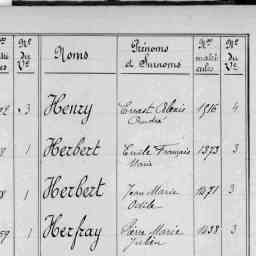 Nº du Vº Noms Prénoms et Surnoms Nºs matricules Nº du Vº
3 Henry Ernest Alexis 1516 4
André
1 Herbert Emile François 1373 3
Marie
1 Herbert Jean Marie 1471 3
Odile
59 1 Herfray Pierre Marie 1438 3
Julien